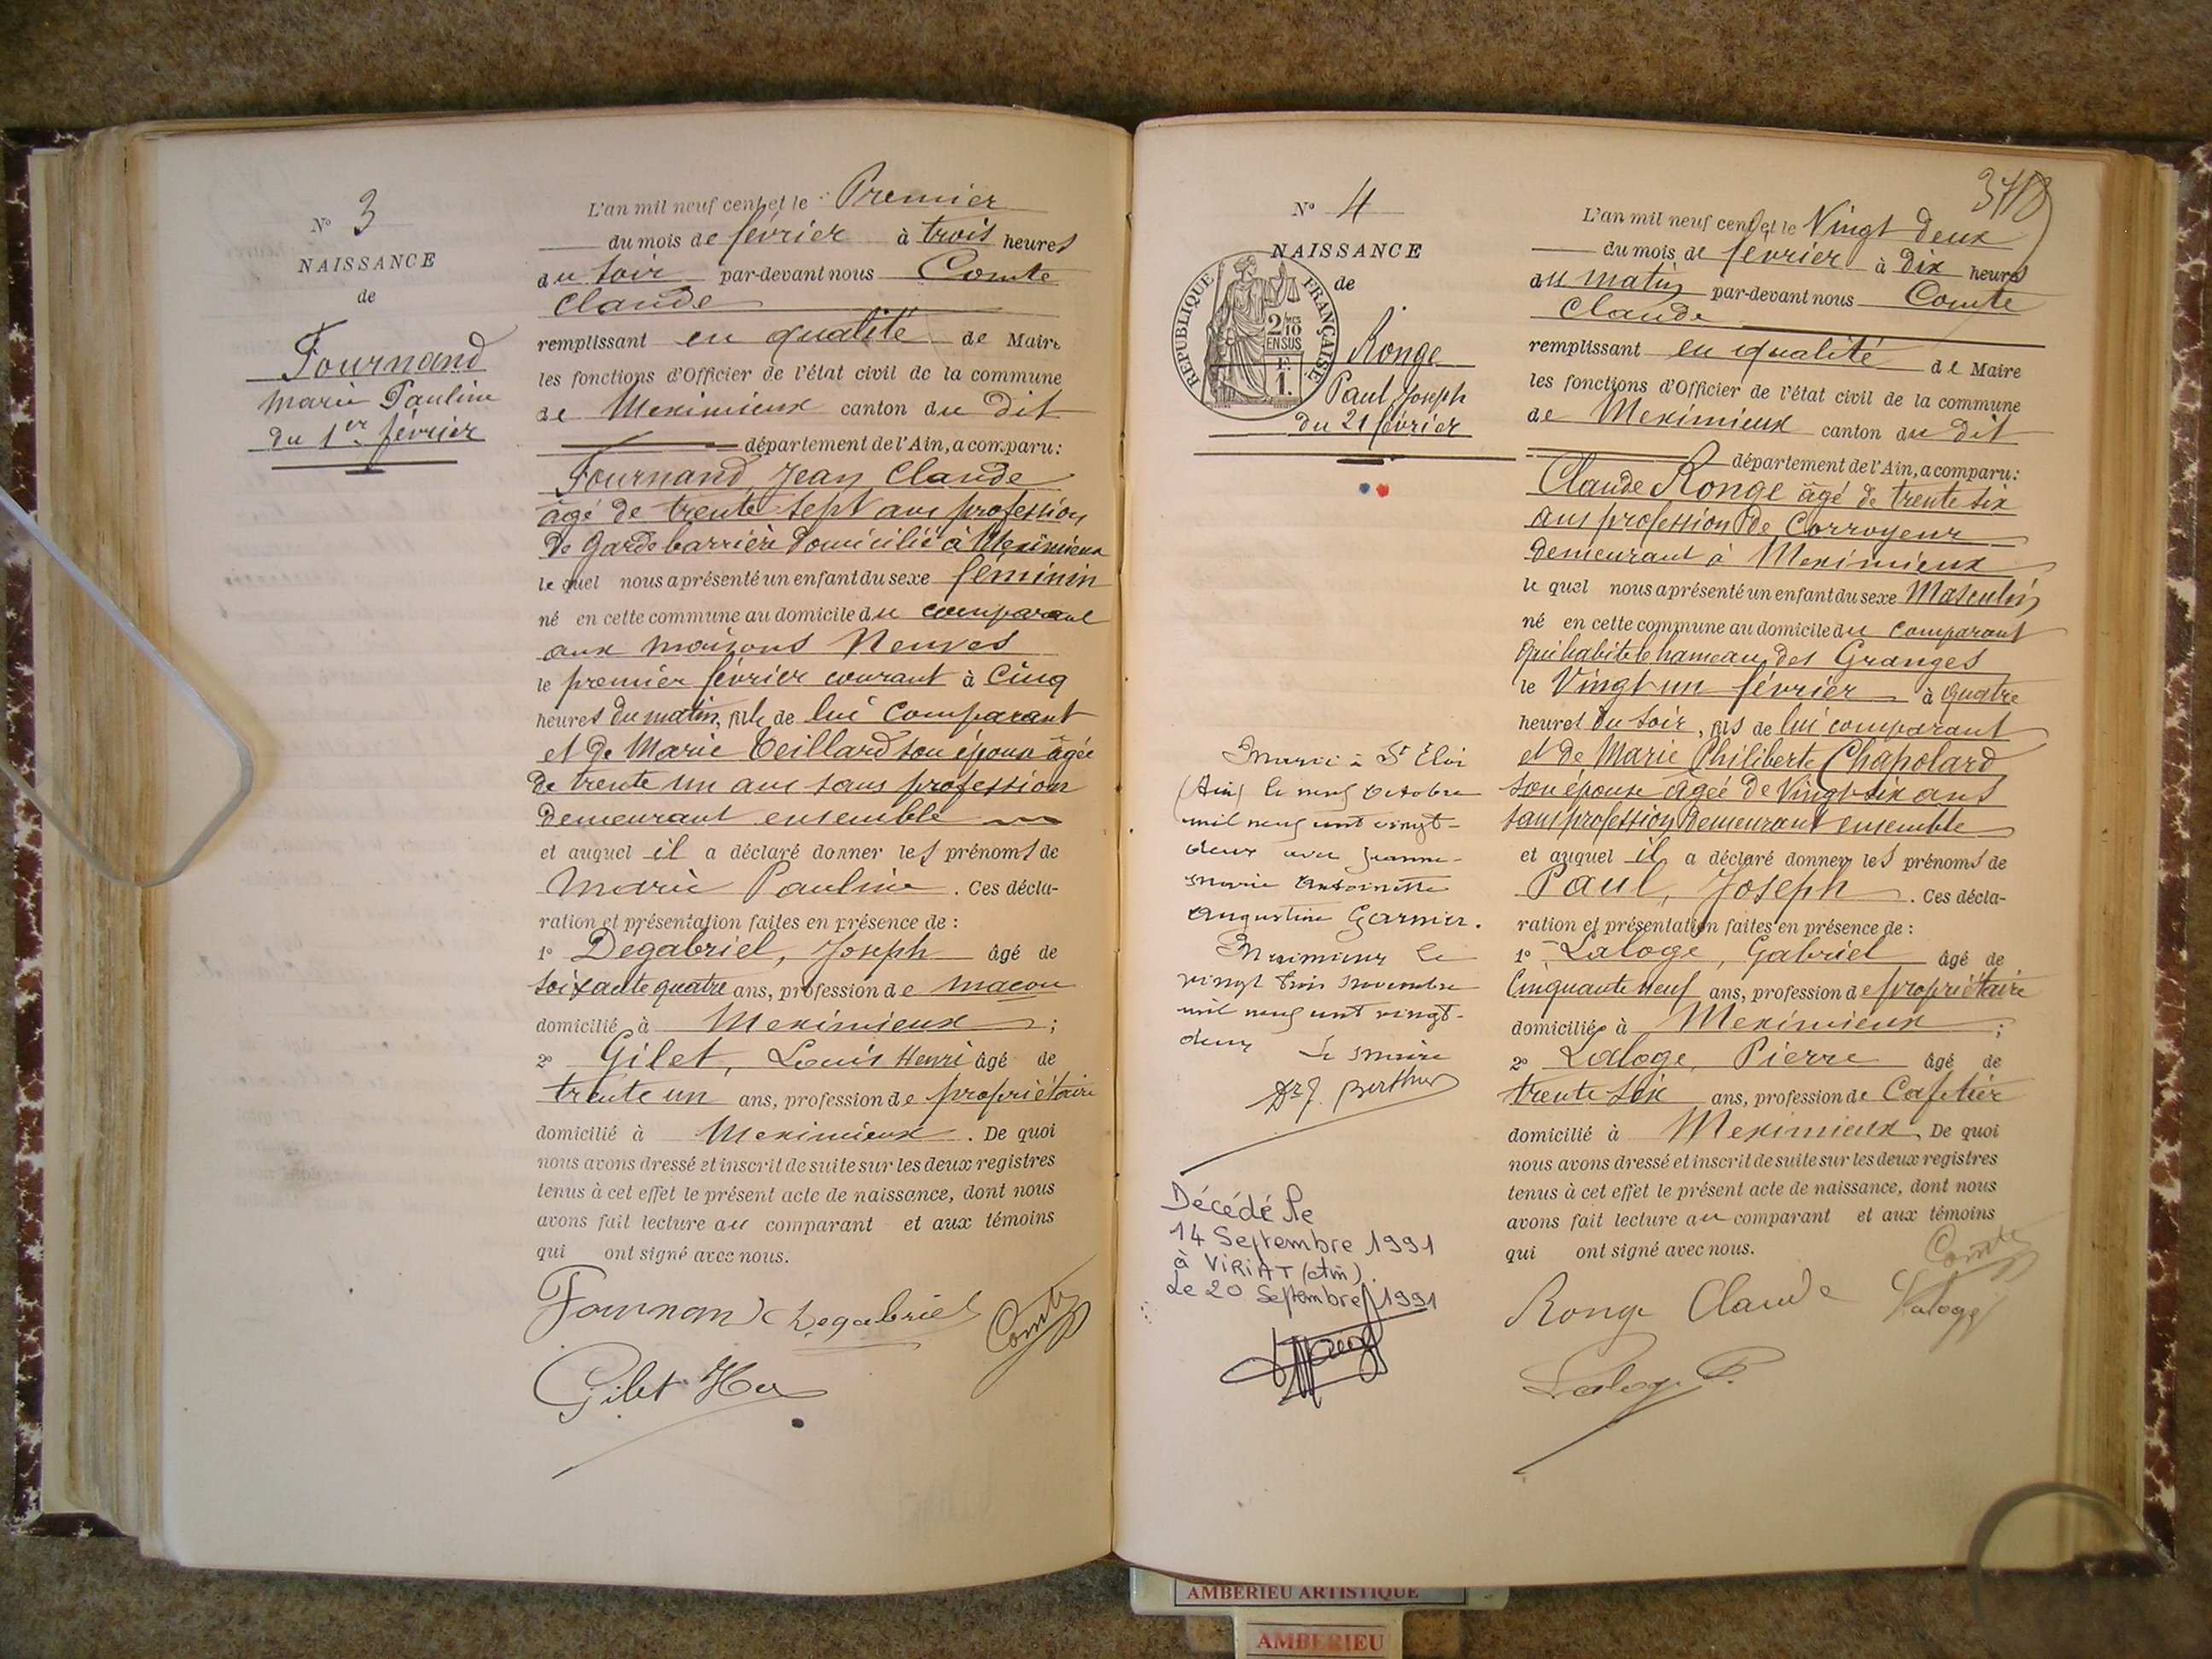 No 3
NAISSANCE
de
Fournand
Marie Pauline
du 1er février
L'an mil neuf cent et le Premier
du mois de février à trois heures
du soir par-devant nous Comte
Claude
remplissant en qualité de Maire
les fonctions d'Officier de l'état civil de la commune
de Meximieux canton du dit
département de l'Ain, a comparu:
Fournand, Jean Claude
âgé de trente sept ans profession
de garde barrière domicilié à Meximieux
lequel nous a présenté un enfant du sexe féminin
né en cette commune au domicile du comparant
aux maisons Neuves
le premier février courant à Cinq
heures du matin, fille de lui Comparant
et de Marie Teillard son épouse âgée
de trente un ans sans profession
demeurant ensemble
et auquel il a déclaré donner les prénoms de
Marie Pauline. Ces décla-
ration et présentation faites en présence de :
1° Degabriel, Joseph âgé de
soixante quatre ans, profession de macon
domicilié à Meximieux ;
2° Gilet, Louis Henri âgé de
trente un ans, profession de propriétaire
domicilié à Meximieux. De quoi
nous avons dressé et inscrit de suite sur les deux registres
tenus à cet effet le présent acte de naissance, dont nous
avons fait lecture au comparant et aux témoins
qui ont signé avec nous.
Fournand Degabriel Comte
Gilet
378
No 4
NAISSANCE
de
REPUBLIQUE FRANÇAISE
2/10
EN SUS
1 F.
Ronge
Paul, Joseph
du 21 février
Marié à St Eloi
(Ain) le neuf Octobre
mil neuf cent vingt-
deux avec Jeanne-
Marie Antoinette
Augustine Garnier.
Meximieux le
vingt trois Novembre
mil neuf cent vingt-
deux Le Maire
Dr J. Berthier
Décédé le
14 Septembre 1991
à VIRIAT (Ain).
Le 20 Septembre 1991
L'an mil neuf cent et le Vingt deux
du mois de février à Dix heures
du matin par-devant nous Comte
Claude
remplissant en qualité de Maire
les fonctions d'Officier de l'état civil de la commune
de Meximieux canton du dit
département de l'Ain, a comparu:
Claude Ronge âgé de trente six
ans profession de Corroyeur
demeurant à Meximieux
lequel nous a présenté un enfant du sexe Masculin
né en cette commune au domicile du comparant
qui habite le hameau des Granges
le Vingt un février à quatre
heures du soir, fils de lui comparant
et de Marie Philiberte Chapolard
son épouse âgée de Vingt six ans
sans profession demeurant ensemble
et auquel il a déclaré donner les prénoms de
Paul, Joseph. Ces décla-
ration et présentation faites en présence de :
1° Laloge, Gabriel âgé de
Cinquante neuf ans, profession de propriétaire
domicilié à Meximieux ;
2° Laloge, Pierre âgé de
trente six ans, profession de Cafetier
domicilié à Meximieux. De quoi
nous avons dressé et inscrit de suite sur les deux registres
tenus à cet effet le présent acte de naissance, dont nous
avons fait lecture au comparant et aux témoins
qui ont signé avec nous.
Comte
Ronge Claude Laloge
Laloge P.
AMBERIEU ARTISTIQUE
AMBERIEU